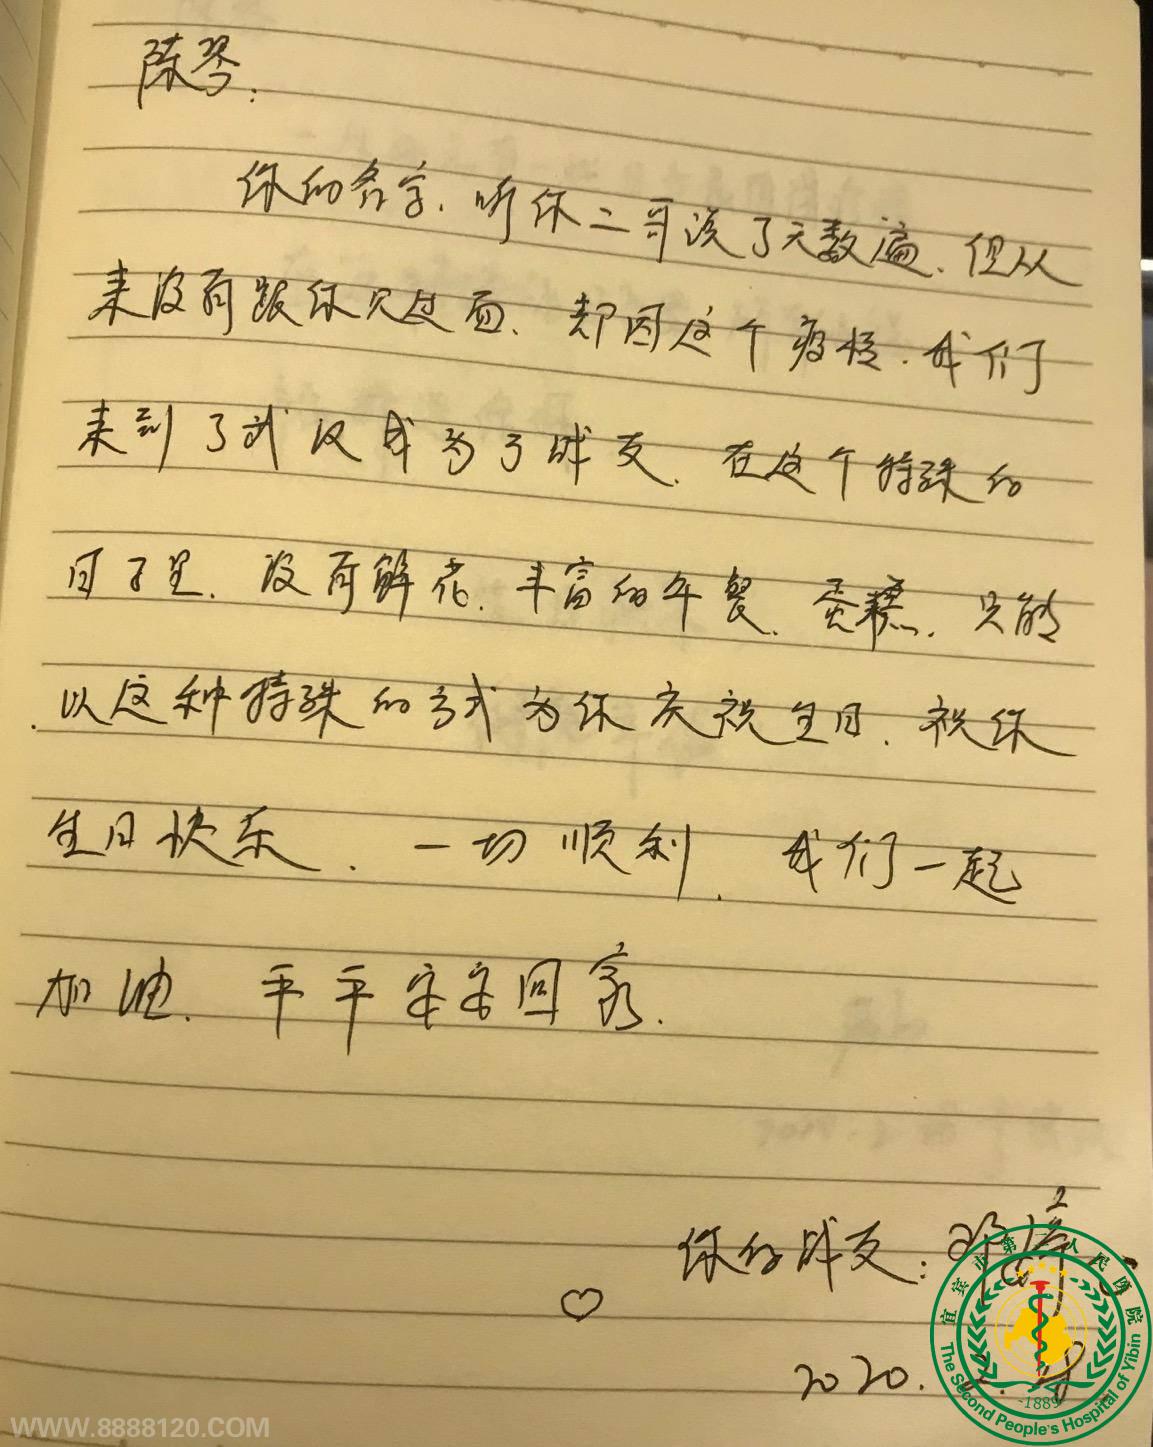 陈琴:
你的名字，听你二哥说了无数遍，但从
来没有跟你见过面，却因这个疫情，我们
来到了武汉成为了战友，在这个特殊的
日子里，没有鲜花，丰富的午餐，蛋糕，只能
以这种特殊的方式为你庆祝生日，祝你
生日快乐，一切顺利，我们一起
加油，平平安安回家.
你的战友: 邓
2020.2.
宜宾市第二人民医院
The Second People's Hospital of Yibin
-1889-
WWW.8888120.COM